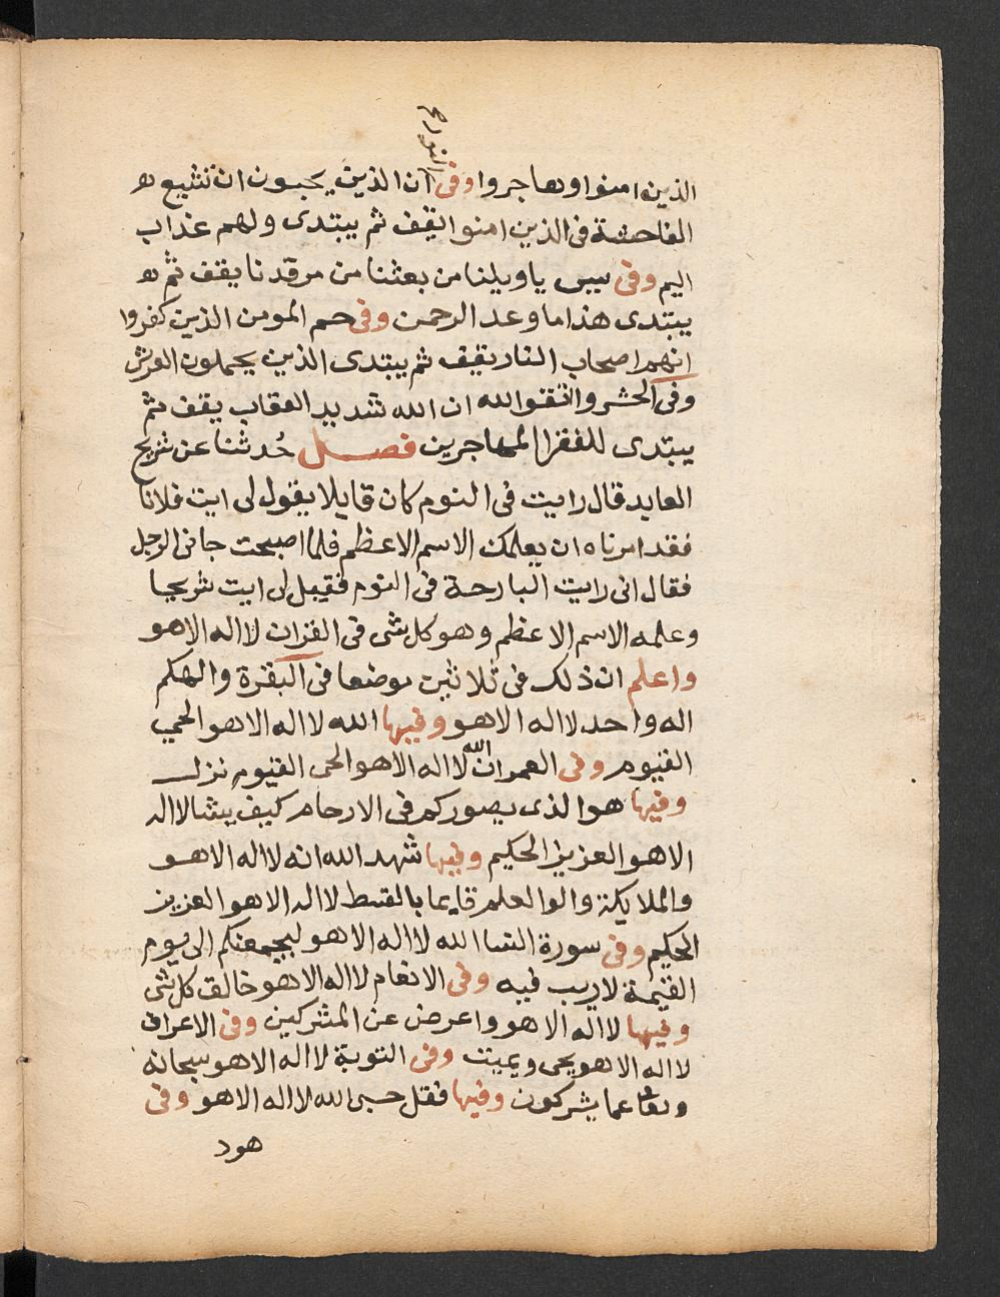 النور صح
الذين امنوا وهاجروا وفى ان الذين يحبون ان تشيع ه
الفاحشة فى الذين امنوا يقف ثم يبتدى ولهم عذاب
اليم وفى يس ياويلنا من بعثنا من مرقدنا يقف ثم ه
يبتدى هذا ما وعد الرحمن وفى حم المومن الذين كفروا
انهم اصحاب النار يقف ثم يبتدى الذين يحملون العرش
وفى الحشر واتقوا الله ان الله شديد العقاب يقف ثم
يبتدى للفقرا المهاجرين فصل حُدثنا عن شريح
العابد قال رايت فى النوم كان قايلا يقول لى ايت فلانا
فقد امرناه ان يعلمك الاسم الاعظم فلما اصبحت جانى الرجل
فقال انى رايت البارحة فى النوم فقيل لى ايت شريحا
وعلمه الاسم الاعظم وهو كل شى فى القران لا اله الا هو
واعلم ان ذلك فى ثلاثين موضعا فى البقرة والهكم
اله واحد لا اله الا هو وفيها الله لا اله الا هو الحي
القيوم وفى العمران الله لا اله الا هو الحى القيوم نزل
وفيها هو الذى يصوركم فى الارحام كيف يشا لا اله
الا هو العزيز الحكيم وفيها شهد الله انه لا اله الا هو
والملايكة والوا العلم قايما بالقسط لا اله الا هو العزيز
الحكيم وفى سورة النسا الله لا اله الا هو ليجمعنكم الى يوم
القيمة لا ريب فيه وفى الانعام لا اله الا هو خالق كل شى
وفيها لا اله الا هو واعرض عن المشركين وفى الاعراف
لا اله الا هو يحى ويميت وفى التوبة لا اله الا هو سبحانه
وتعا عما يشركون وفيها فقل حسبى الله لا اله الا هو وفى
هود